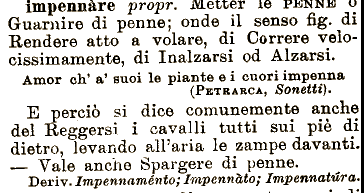 impennàre propr. Metter le PENNE o
Guarnire di penne; onde il senso fig. di
Rendere atto a volare, di Correre velo-
cissimamente, di Inalzarsi od Alzarsi.
Amor ch' a' suoi le piante e i cuori impenna
(PETRARCA, Sonetti).
E perciò si dice comunemente anche
del Reggersi i cavalli tutti sui piè di
dietro, levando all'aria le zampe davanti.
— Vale anche Spargere di penne.
Deriv. Impennaménto; Impennàto; Impennatúra.